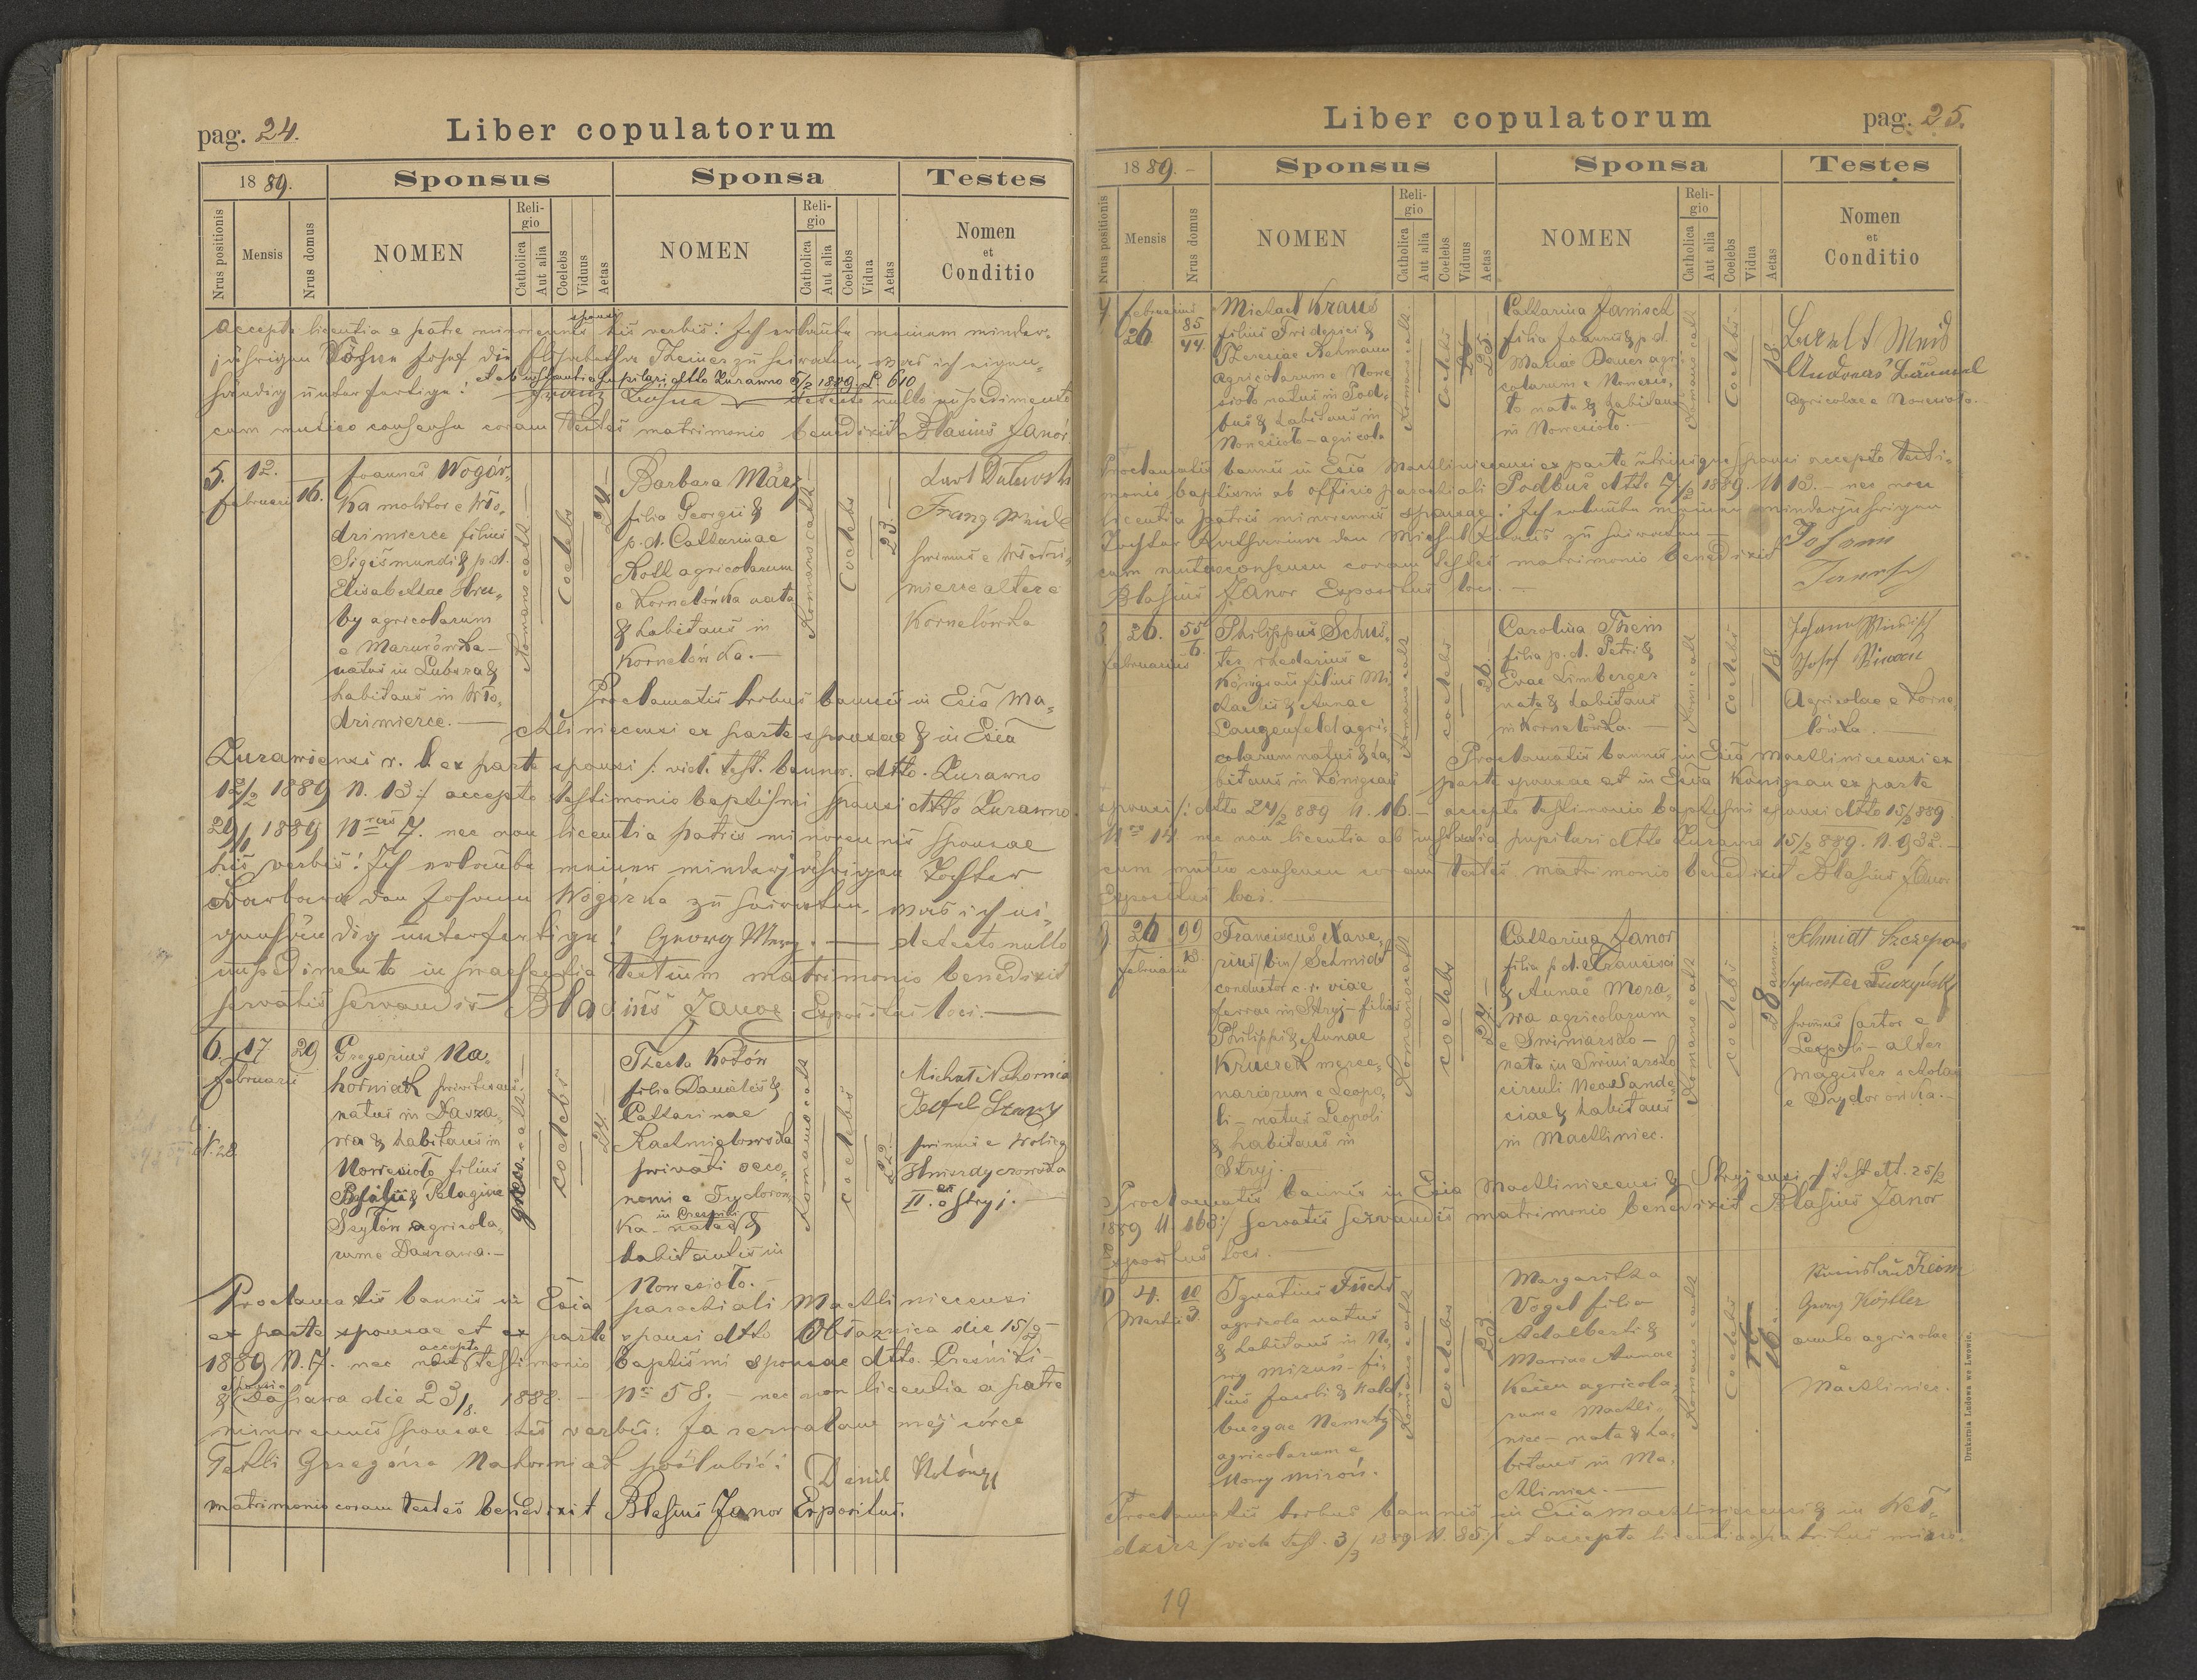 pag. 24.
Liber copulatorum
1889.
Sponsus
Sponsa
Testes
Nrus positionis
Mensis
Nrus domus
NOMEN
Religio
Catholica
Aut alia
Coelebs
Viduus
Aetas
NOMEN
Religio
Catholica
Aut alia
Coelebs
Vidua
Aetas
Nomen
et
Conditio
Accepta licentia a patre minorennis sponsi his verbis: Ich erlaube meinem minder-
jährigen Sohne Josef die Elisabetha Theiner zu heiraten, was ich eigen-
händig unterfertige!
et ab instantia pupilari dtto Zurawno 5/2 1889. L 610
Franz
detecto nullo impedimento
cum mutuo consensu coram testes matrimonio benedixit Blasius Janor
5.
12.
Februarii
16.
Joannes Wogór-
ka molitor e Wło-
dzimierce filius
Sigismundi & p.d.
Elisabethae Hru-
by agricolarum
e Mazurówka -
natus in Lubsza &
habitans in Wło-
dzimierce.
Romano cath.
Coelebs
24
Barbara Märy
filia Georgii &
p. d. Catharinae
Roth agricolarum
e Kornelówka nata
& habitans in
Kornelówka. -
Romano cath
Coelebs
23.
Franz
primus e Włodzi-
mierce alter e
Kornelówka
Proclamatis tribus bannis in Ecia Ma-
chliniecensi ex parte sponsae & in Ecia
Zurawiensi r. l. ex parte sponsi /: vid. test. bannor. dtto. Zurawno
12/2 1889 N. 13 :/ accepto testimonio baptismi sponsi dtto Zurawno
29/1 1889 Nrus 7. nec non licentia patris minorennis sponsae
his verbis: Ich erlaube meiner minderjährigen Tochter
Barbara den Johann Wogórka zu heiraten, was ich ei-
genhändig unterfertige! Georg Märy. - detecto nullo
impedimento in praesentia testium matrimonio benedixit
servatis servandis Blasius Janor Expositus loci.
6.
17
Februarii
29
N. 28
Gregorius Na-
horniak
natus in Dasza-
wa & habitans in
Nowesioło filius
Basilii & Pelagiae
Szytón agricola-
rum e Daszawa. -
graeco-cath
coelebs
24
Thecla Kotón
filia Danielis &
Catharinae
Rachmielowska
privati oeco-
nomi e Tydorów-
ka - nata in &
habitantis in
Nowesioło. -
Romano cath
coelebs
22.
Michał Nahorniak
Teofil
primus e Wolica
Hnizdyczowska
II. er e Stryj. -
Proclamatis bannis in Ecia parochiali Machliniecensi
ex parte sponsae et ex parte sponsi dtto Oblaznica die 15/2 -
1889 N. 7. nec non accepto testimonio baptismi sponsae dtto.
& sponsi Daszawa die 23/8. 1888. - Nro 58. - nec non licentia a patre
minorennis sponsae his verbis: Ja zezwalam mej córce
Tekli Grzegórza Nahorniak poślubić: Danil
matrimonio coram testes benedixit Blasius Janor Expositus.
Liber copulatorum
pag. 25.
1889. -
Sponsus
Sponsa
Testes
Nrus positionis
Mensis
Nrus domus
NOMEN
Religio
Catholica
Aut alia
Coelebs
Viduus
Aetas
NOMEN
Religio
Catholica
Aut alia
Coelebs
Vidua
Aetas
Nomen
et
Conditio
7
Februarius
26
85
44
Michael Kraus
filius Friderici &
Theresiae Rehmann
agricolarum e Nowe
sioło natus in Pod-
buż & habitans in
Nowesioło - agricola
Romano cath.
Coelebs
25.
Catharina Janisch
filia Joannis & p. d.
Mariae Bauer agri-
colarum e Nowesio-
ło nata & habitans
in Nowesioło. -
Romano cath
Coelebs.
18.
Andreas
agricolae e Nowesioło.
Proclamatis bannis in Ecia Machliniecensi ex parte utriusque sponsi accepto testi-
monio baptismi ab officio parochiali Podbuż dtto 7/2 1889. N 13. - nec non
licentia patris minorennis sponsae: Ich erlaube meiner minderjährigen
Tochter Katharina den Michael Kraus zu heiraten -
cum mutuo consensu coram testes matrimonio benedixit
Blasius Janor Expositus loci. -
Johann
Janisch
8
26.
Februarius
55
6.
Philippus Schus-
ter rhedarius e
Königsau filius Mi-
chaelis & Annae
Langenfeld agri-
colarum natus & ha-
bitans in Königsau
Romano cath
coelebs
26.
Carolina Thein
filia p. d. Petri &
Evae Limberger
nata & habitans
in Kornelówka. -
Romano cath
Coelebs
18.
Johann
Josef
Agricolae e Korne-
lówka.
Proclamatis bannis in Ecia Machliniecensi ex
parte sponsae et in Ecia Königsau ex parte
sponsi /: dtto 24/2 889 N. 16. - accepto testimonio baptismi sponsi dtto 15/2 889.
Nro 14 nec non licentia ab instantia pupilari dtto Zurawno 15/2 889. N. 932. -
cum mutuo consensu coram testes matrimonio benedixit Blasius Janor
Expositus loci.
9
26
Februarii
99
13.
Franciscus Xave-
rius /bin/ Schmidt
conductor c. r. viae
ferrae in Stryj - filius
Philippi & Annae
Kruczek merce-
nariorum e Leopo-
li - natus Leopoli
& habitans in
Stryj. -
Romano cath
coelebs
24.
Catharina Janor
filia p. d. Francisci
& Annae Mora-
wa agricolarum
e Swiniarsko -
nata in Swiniarsko
circuli Neo Sande-
ciae & habitans
in Machliniec.
Romano cath
coelebs
28 annor.
Schmidt Szczepan
Sylwester
primus sartor e
Leopoli - alter
magister scholae
e Dydorówka. -
Proclamatis bannis in Ecia Machliniecensi & Stryjensi /: test dtt. 25/2
1889 N 163 :/ servatis servandis matrimonio benedixit Blasius Janor
Expositus loci.
10
4.
Martii
10
3
Ignatius Füchs
agricola natus
& habitans in No-
wy Mizuń - fi-
lius Jacobi & Wald-
burgae Nemetz
agricolarum e
Nowy Mizoń.
Romano cath
coelebs
23.
Margaritha
Vogel filia
Adalberti &
Mariae Annae
agricola-
rum e Machli-
niec - nata & ha-
bitans in Ma-
chliniec. -
Romano cath
Coelebs
16.
Georg
ambo agricolae
e
Machliniec.
Proclamatis tribus bannis in Ecia Machliniecensi & in Weł-
dzirz /vide test. 3/3 1889 N. 85 :/ et accepta licentia a patribus mino-
19
Drukarnia Ludowa we Lwowie.